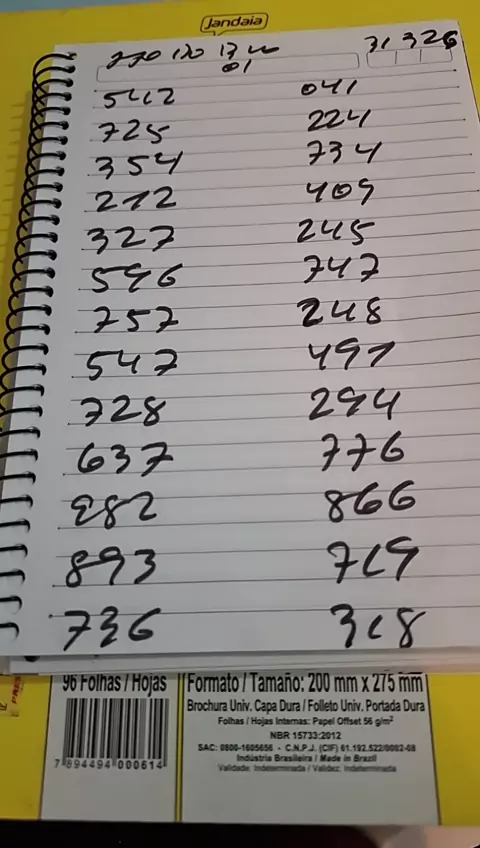 Jandaia
31 326
01
542 041
725 224
354 734
212 409
327 245
596 747
757 248
547 497
728 294
637 776
282 866
893 719
736 318
96 Folhas / Hojas
Formato / Tamaño: 200 mm x 275 mm
Brochura Univ. Capa Dura / Folleto Univ. Portada Dura
Folhas / Hojas Internas: Papel Offset 56 g/m²
NBR 15733:2012
SAC: 0800-1605656 - C.N.P.J. (CIF) 61.192.522/0002-08
Indústria Brasileira / Made in Brazil
Validade: Indeterminada / Validez: Indeterminada
7 894494 000614